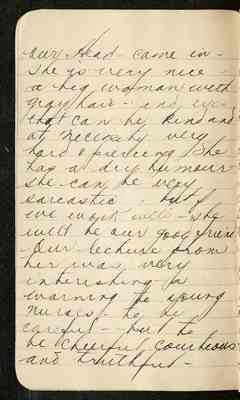 our Head came in -
She is very nice -
a big woman with
gray hair - and eyes
that can be kind and
at necessity very
hard & piercing She
has a dry humour
she can be very
sarcastic, but if
we work well - she
will be our good friend
Our lecture from
her was very
interesting - a
warning to young
nurses - to be
careful - but to
be cheerful, courteous
and truthful -